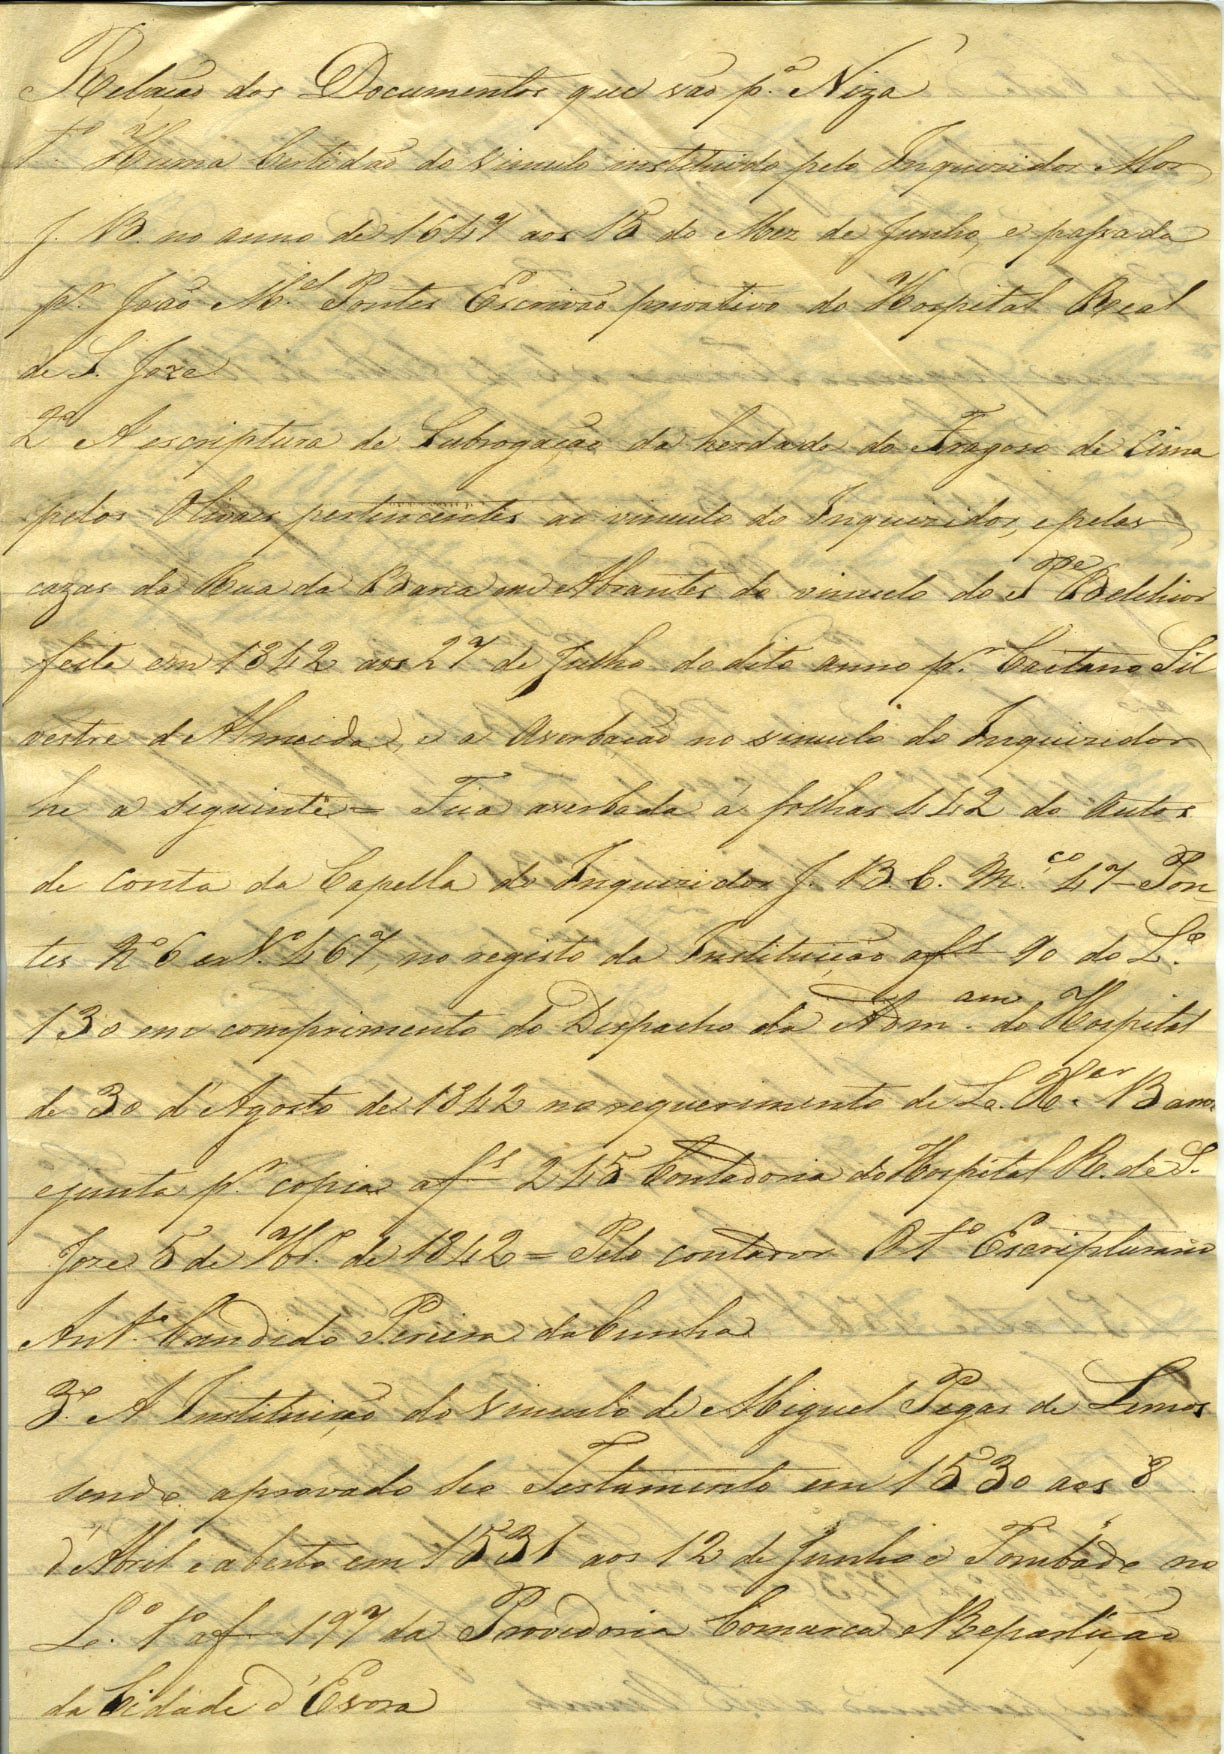 Relação dos Documentos que vão p.ª Niza
1º Huma Certidão do vinculo instituido pelo Inqueridor Mor
J. B. no anno de 1647 aos 15 do Mez de Junho, e passada
p.r João M.el Pontes Escrivão privativo do Hospital Real
de S. Joze
2ª A escriptura de Subrogação da herdade do Fragoso de Cima
pelos Olivaes pertencentes ao vinculo do Inqueridor, e pelas
cazas da Rua da Barca em Abrantes do vinculo do P.e Belchior
feita em 1842 aos 27 de Julho do dito anno p.r Caetano Sil
vestre d'Almeida, e a Averbação no vinculo do Inqueridor
he a seguinte = Fica averbada a folhas 442 do Autos
de conta da Capella do Inqueridor J. B. C. M.co 47 Pon
tes Nº 6 e N.º 467, no registo da Instituição a fs 90 do L.º
130 em comprimento do Despacho da Adm.am do Hospital
de 30 d'Agosto de 1842 no requerimento de L. X.er B
e junta p.r copia a fs 245 Contadoria do Hospital R. de S.
Joze 5 de 9br.º de 1842 = Pelo contador O 1º Escripturario
Ant.º Candido Pereira da Cunha
3ª A Instituição do vinculo de Miguel Pegas de Lemos
sendo aprovado seo Testamento em 1530 aos 8
d'Abril e aberto em 1531 aos 12 de Junho e Tombado no
L.º 1º a f 197 da Provedoria Comarca Repartição
da Cidade d'Evora